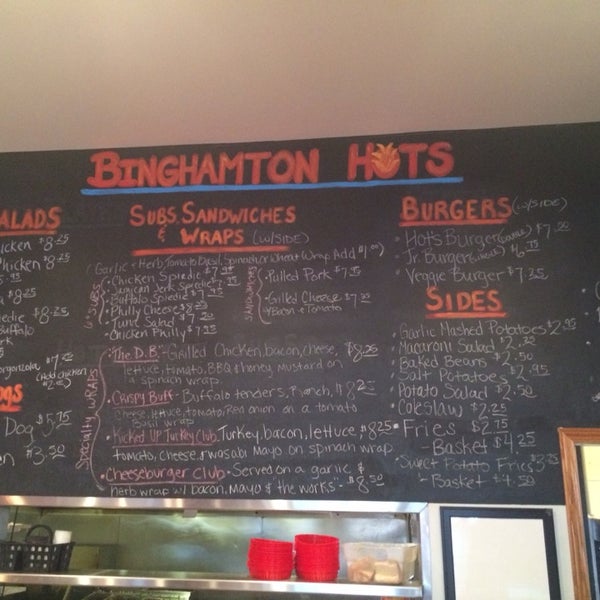 BINGHAMTON HOTS
SALADS
Chicken $8.25
Chicken $8
$8.25
$8.25
Buffalo
$7.
(Add chicken
Dogs
Dog $5.75
$3.50
SUBS, SANDWICHES
& WRAPS (w/SIDE)
(Garlic & Herb, Tomato Basil, Spinach or Wheat Wrap Add $1.00)
SUBS
• Chicken Spiedie $7
• Jamaican Jerk Spiedie $7
• Buffalo Spiedie $7
• Philly Cheese $8.25
• Tuna Salad $7
• Chicken Philly $7.25
SANDWICHES
• Pulled Pork $7.75
• Grilled Cheese $7
w/Bacon & Tomato
Specialty WRAPS
• "The D.B."- Grilled Chicken, bacon, cheese, $8.25
lettuce, tomato, BBQ & honey mustard on
a spinach wrap.
• Crispy Buff- Buffalo tenders, ranch, $8.25
cheese, lettuce, tomato, Red onion on a tomato
Basil wrap
• Kicked UP Turkey Club- Turkey, bacon, lettuce, $8.25
tomato, cheese, & wasabi Mayo on spinach wrap
• Cheeseburger Club - Served on a garlic &
herb wrap w/ bacon, Mayo & the works - $8.50
BURGERS (w/SIDE)
• Hots Burger $7
• Jr. Burger $6.75
• Veggie Burger $7.25
SIDES
• Garlic Mashed Potatoes $2.95
• Macaroni Salad $2
• Baked Beans $2.50
• Salt Potatoes $2.95
• Potato Salad $2.50
• Coleslaw $2.25
• Fries $2.75
- Basket $4.25
• Sweet Potato Fries $3.25
- Basket $4.50